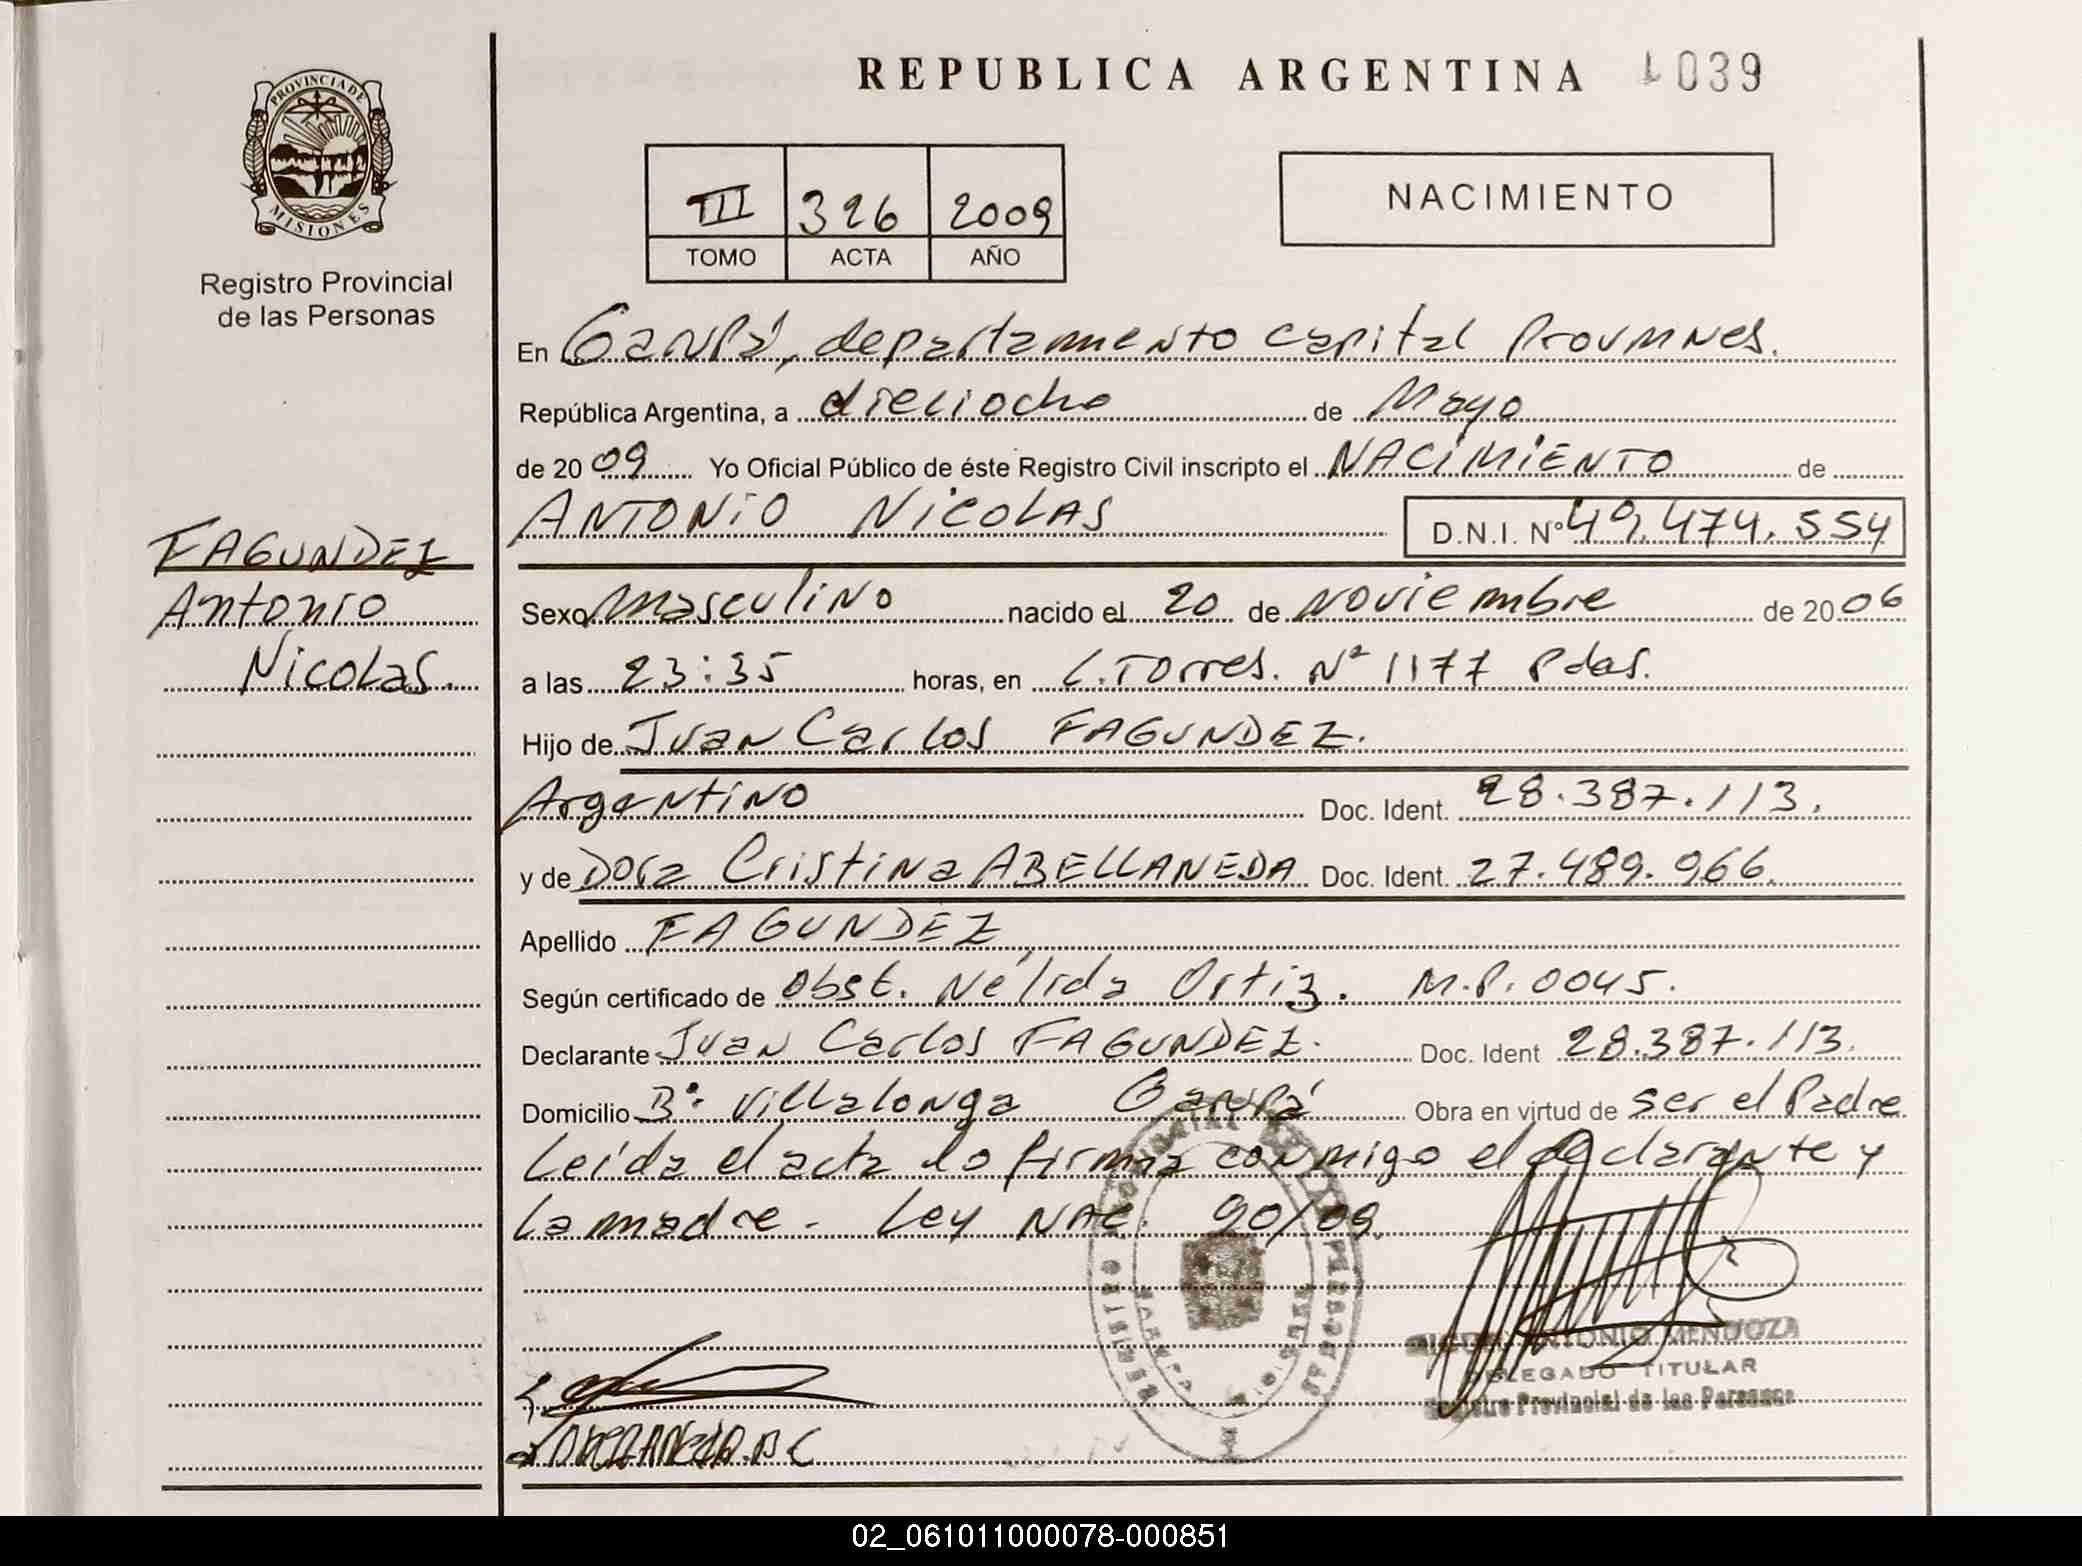 REPUBLICA ARGENTINA 1039
PROVINCIA DE
MISIONES
Registro Provincial
de las Personas
III 326 2009
TOMO ACTA AÑO
NACIMIENTO
En Garupá, departamento Capital Prov.
República Argentina, a dieciocho de Mayo
de 20 09 Yo Oficial Público de éste Registro Civil inscripto el NACIMIENTO de
ANTONIO NICOLAS D.N.I. N° 49.474.554
FAGUNDEZ
Antonio
Nicolas.
Sexo Masculino nacido el 20 de Noviembre de 20 06
a las 23:35 horas, en L. Torres. Nº 1177 Pdas.
Hijo de Juan Carlos FAGUNDEZ.
Argentino Doc. Ident. 28.387.113.
y de Dora Cristina ABELLANEDA Doc. Ident. 27.489.966.
Apellido FAGUNDEZ
Según certificado de Obst. Nélida Ortiz. M.P. 0045.
Declarante Juan Carlos FAGUNDEZ. Doc. Ident 28.387.113.
Domicilio Bº. Villalonga Garupá Obra en virtud de ser el Padre
Leída el acta lo firma conmigo el declarante y
la madre. Ley NAC. 90/09.
ANTONIO MENDOZA
DELEGADO TITULAR
Registro Provincial de las Personas
02_061011000078-000851